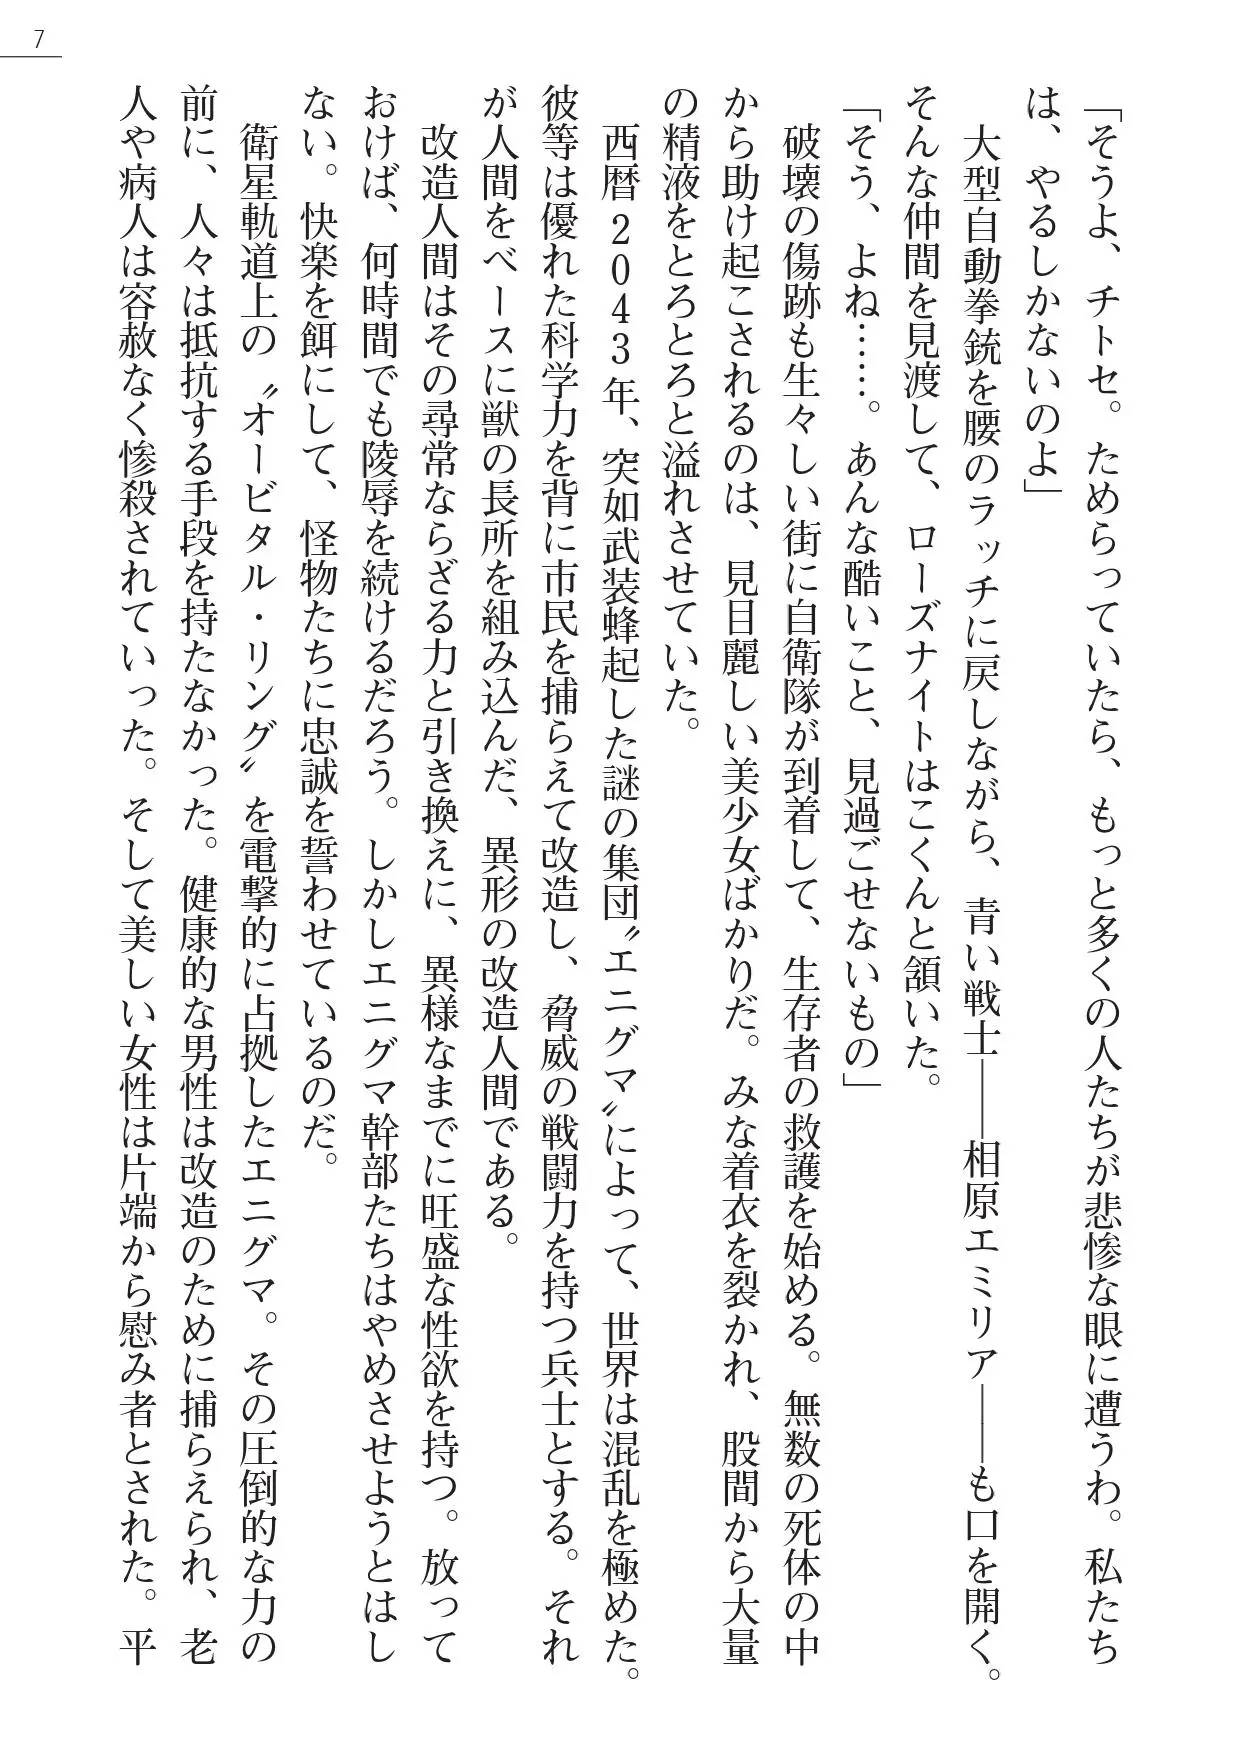 7
「そうよ、チトセ。ためらっていたら、もっと多くの人たちが悲惨な眼に遭うわ。私たち
は、やるしかないのよ」
大型自動拳銃を腰のラッチに戻しながら、青い戦士――相原エミリア――も口を開く。
そんな仲間を見渡して、ローズナイトはこくんと頷いた。
「そう、よね……。あんな酷いこと、見過ごせないもの」
破壊の傷跡も生々しい街に自衛隊が到着して、生存者の救護を始める。無数の死体の中
西暦2043年、突如武装蜂起した謎の集団〝エニグマ〟によって、世界は混乱を極めた。
彼等は優れた科学力を背に市民を捕らえて改造し、脅威の戦闘力を持つ兵士とする。それ
が人間をベースに獣の長所を組み込んだ、異形の改造人間である。
改造人間はその尋常ならざる力と引き換えに、異様なまでに旺盛な性欲を持つ。放って
おけば、何時間でも陵辱を続けるだろう。しかしエニグマ幹部たちはやめさせようとはし
ない。快楽を餌にして、怪物たちに忠誠を誓わせているのだ。
衛星軌道上の〝オービタル・リング〟を電撃的に占拠したエニグマ。その圧倒的な力の
前に、人々は抵抗する手段を持たなかった。健康的な男性は改造のために捕らえられ、老
人や病人は容赦なく惨殺されていった。そして美しい女性は片端から慰み者とされた。平